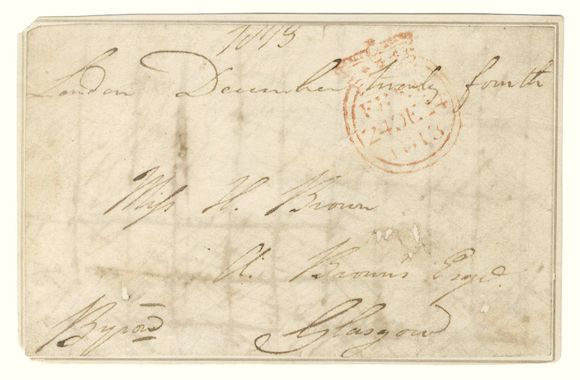 1813
London December twenty fourth
FREE
24 DE 24
1813
Miss H. Brown
A. Brown's Esqr.
Byron Glasgow